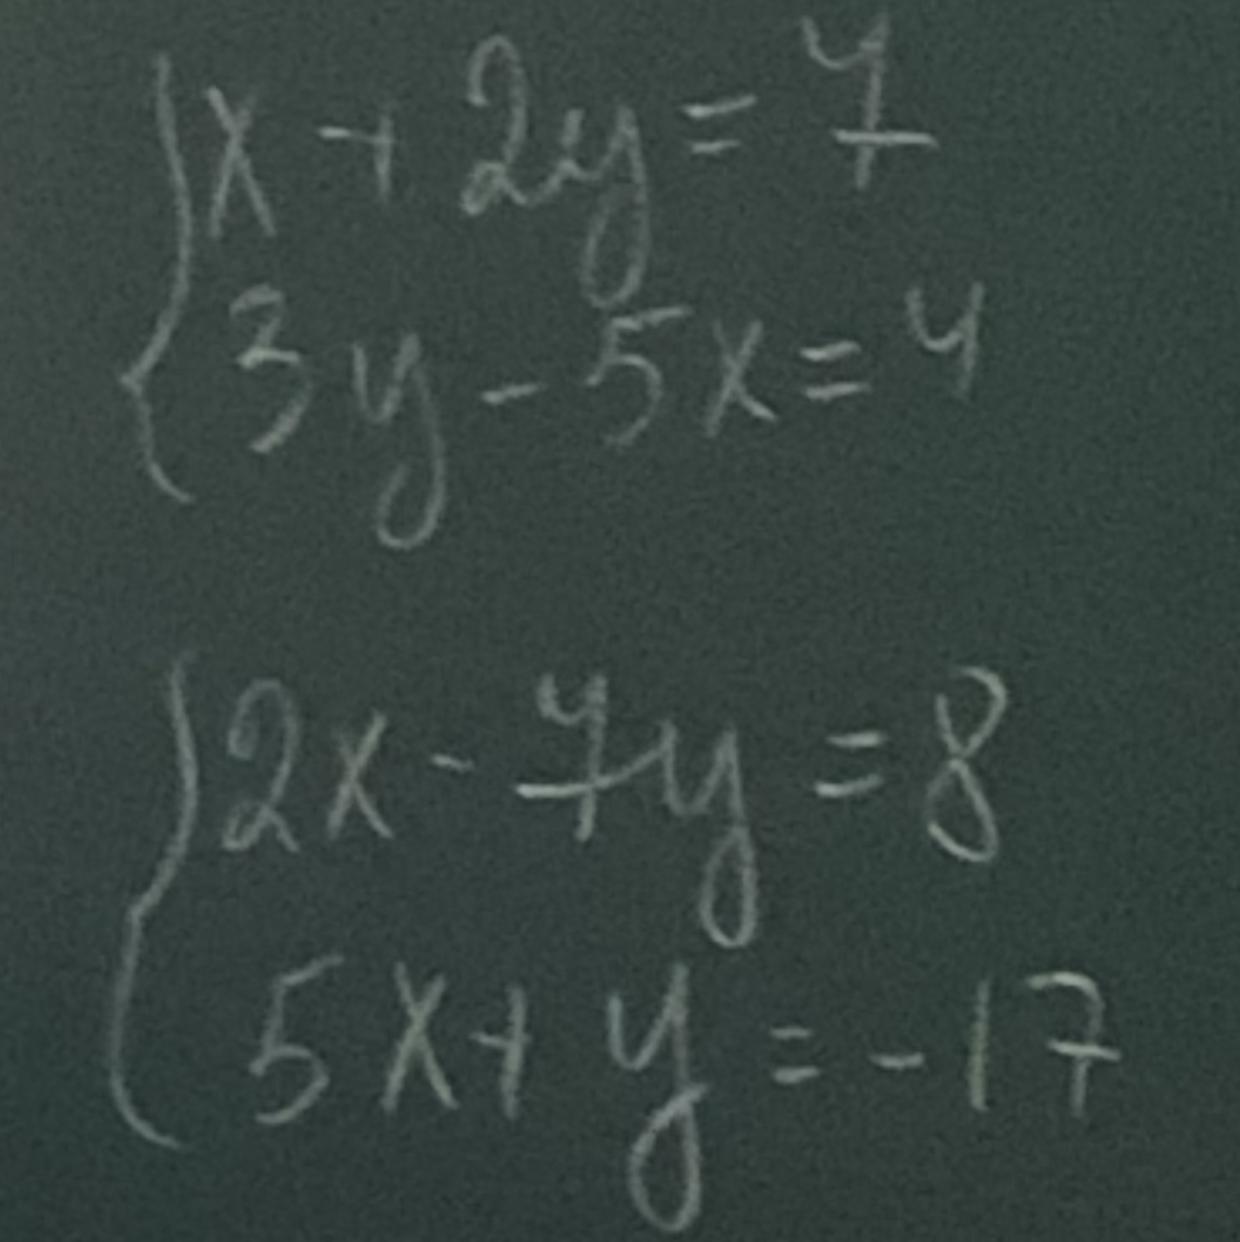 x + 2y = 7
3y - 5x = 4
2x - 7y = 8
5x + y = -17